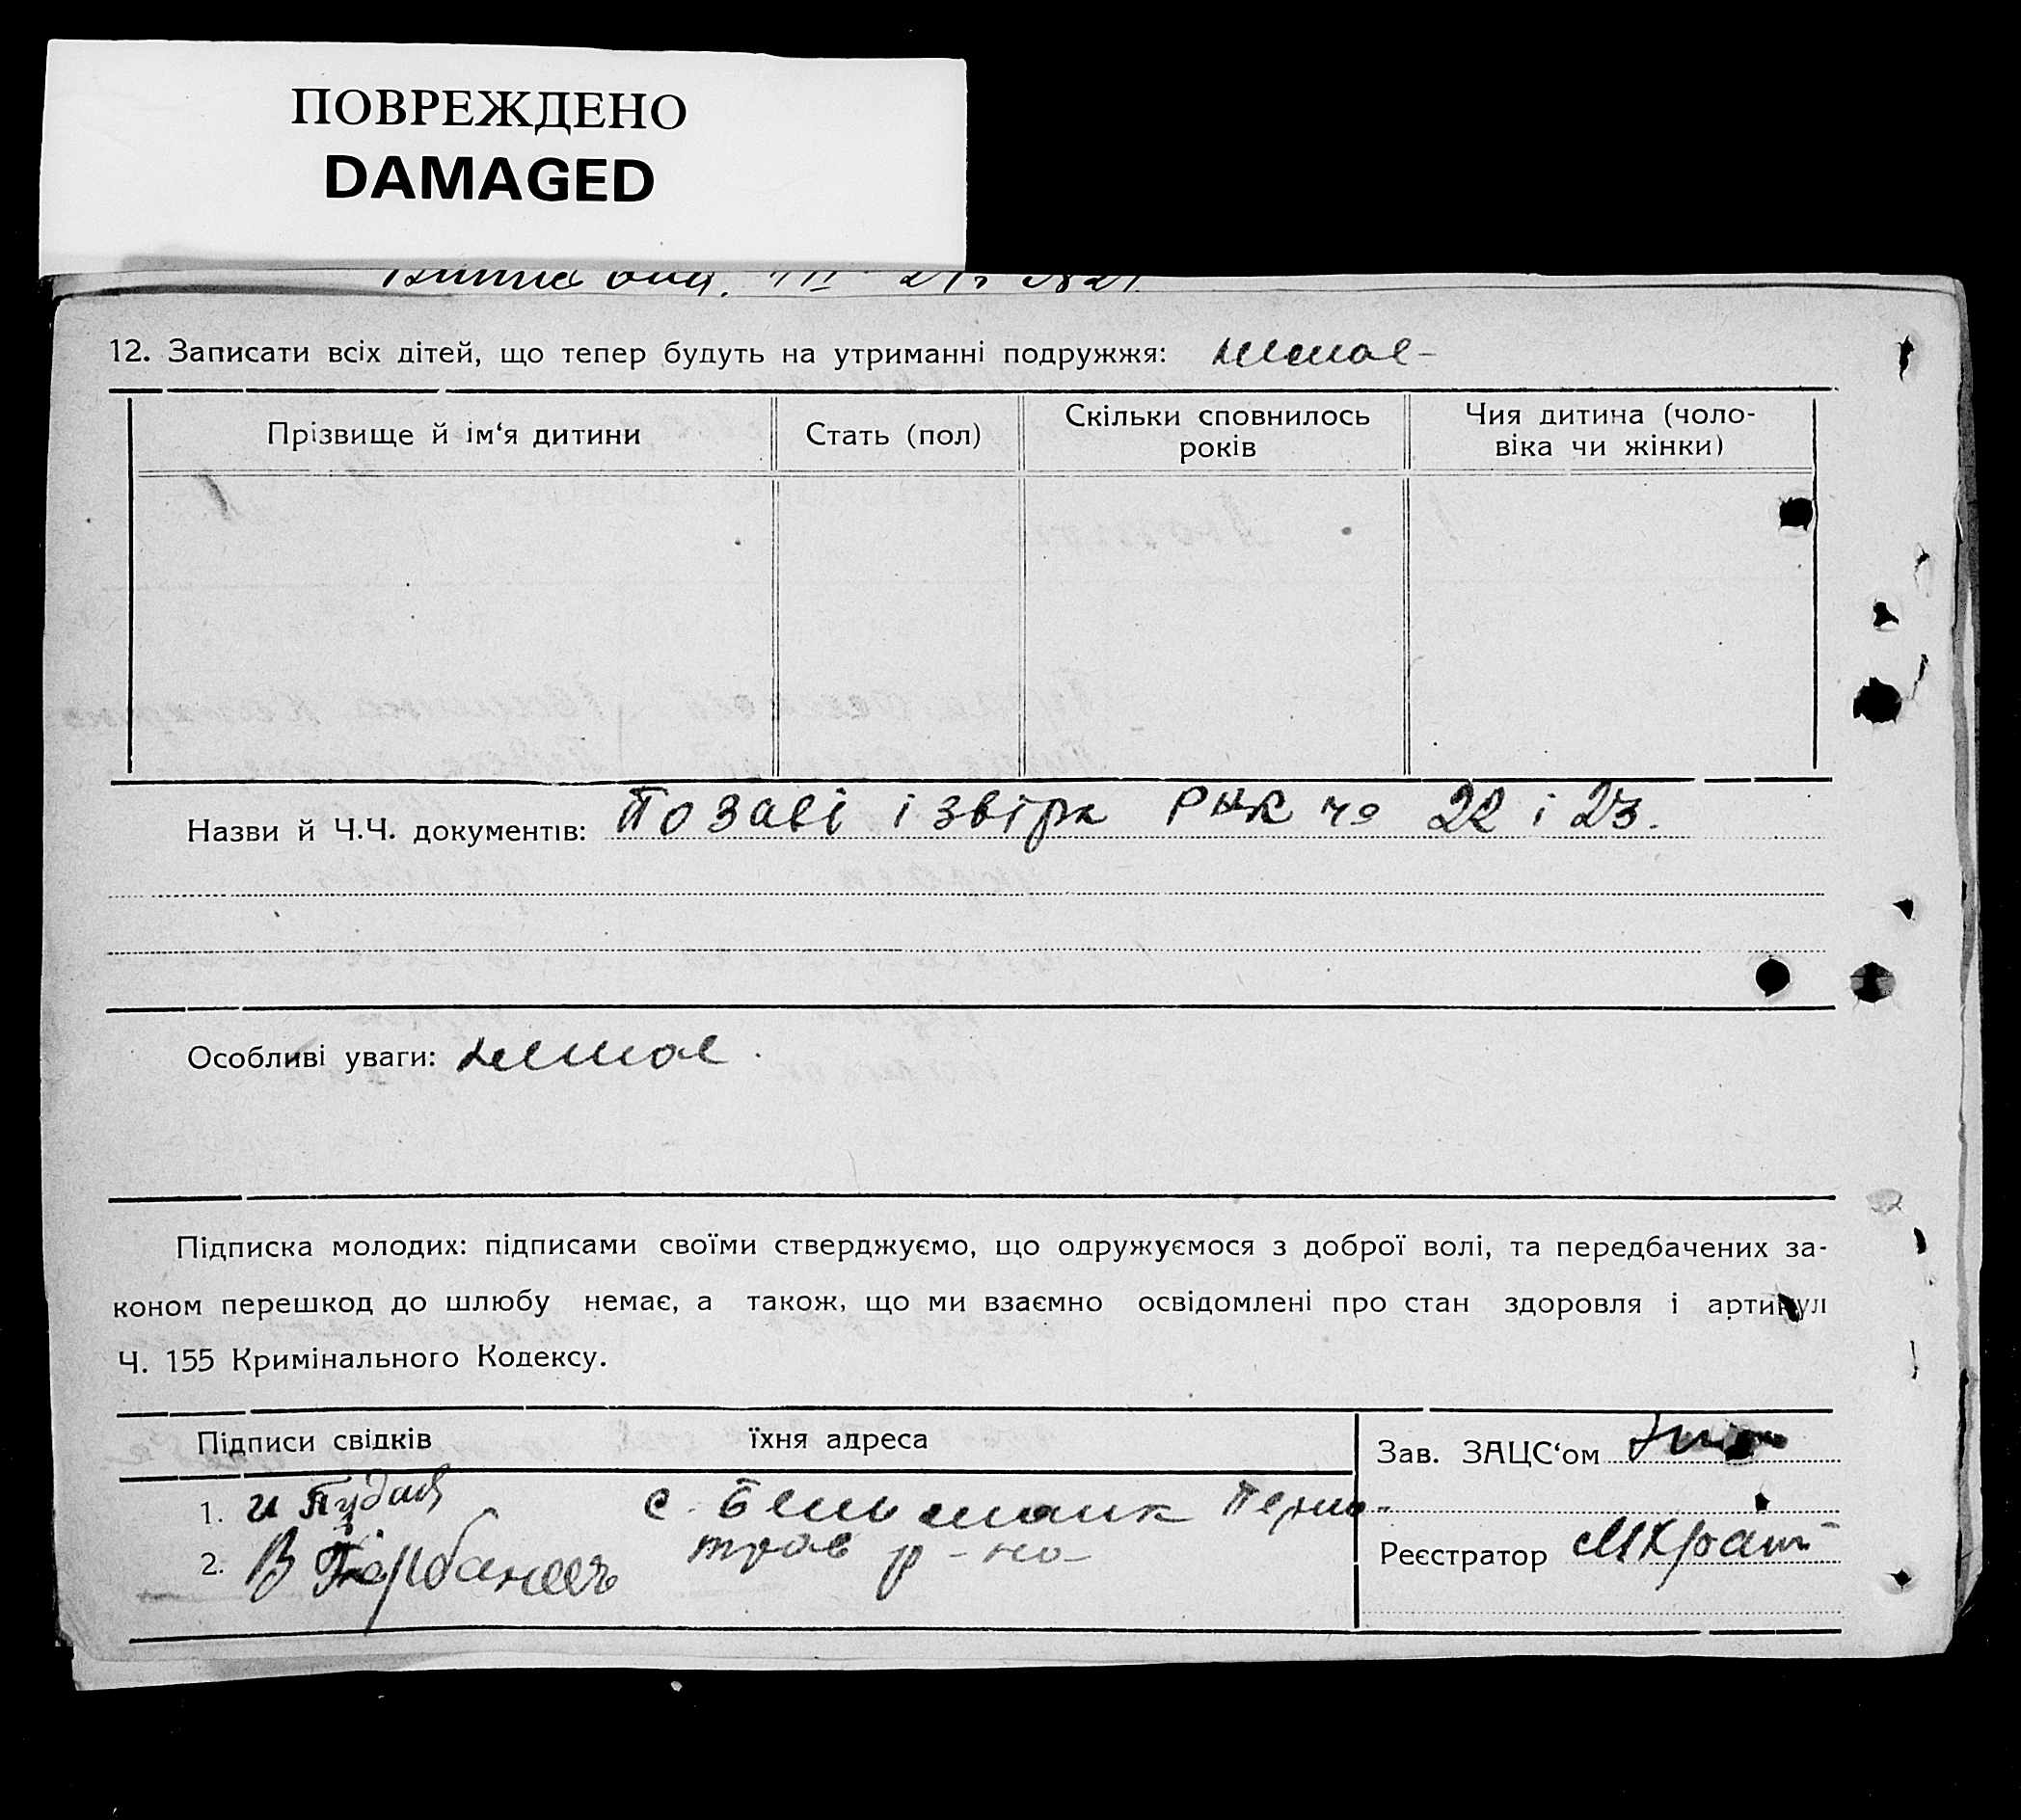 ПОВРЕЖДЕНО
DAMAGED
12. Записати всіх дітей, що тепер будуть на утриманні подружжя: немає-
Прізвище й ім‘я дитини
Стать (пол)
Скільки сповнилось
років
Чия дитина (чоло-
віка чи жінки)
Назви й Ч.Ч. документів: По заві і звірк РНК чо 22 і 23.
Особливі уваги: немає.
Підписка молодих: підписами своїми стверджуємо, що одружуємося з доброї волі, та передбачених за-
коном перешкод до шлюбу немає, а також, що ми взаємно освідомлені про стан здоровля і артикул
Ч. 155 Кримінального Кодексу.
Підписи свідків
їхня адреса
Зав. ЗАЦС‘ом
1. с. Бельманк Першо-
2. В трав р-на
Реєстратор МКрат